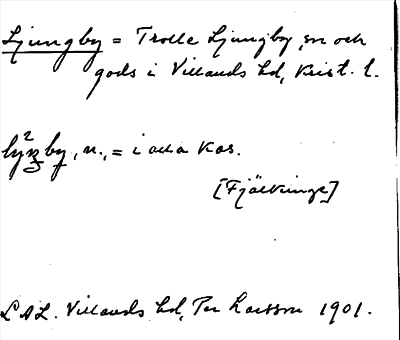 Ljungby = Trolle Ljungby, sn och
gods i Villands hd, Krist. l.
2
by, n., = i alla kas.
[Fjälkinge]
LAL. Villands hd, Per Larsson 1901.